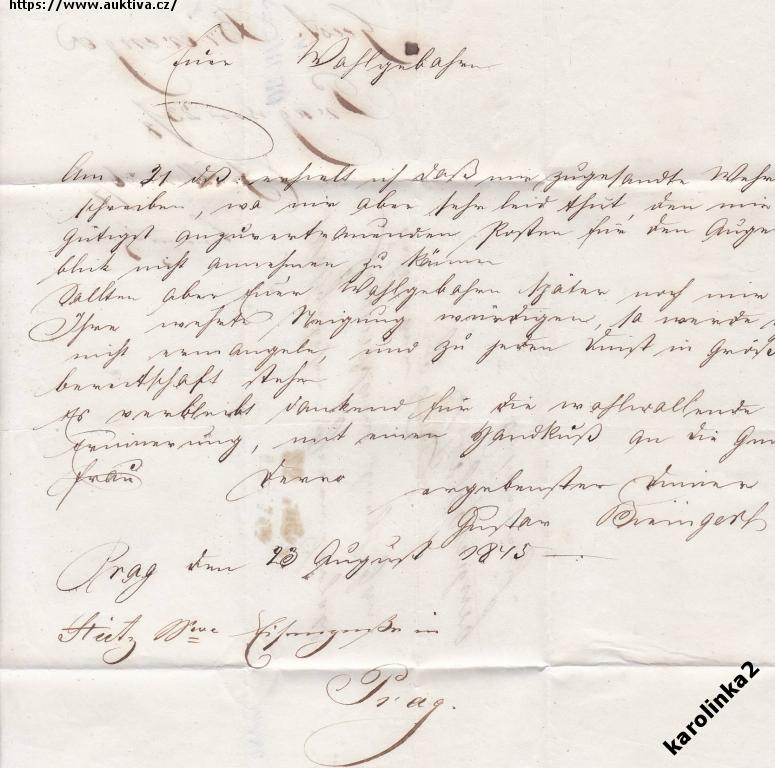 https://www.auktiva.cz/
Euer Wohlgebohrn
Am 21 dß erhielt ich daß mir zugesandte Wehr
schreiben, wo mir aber sehr leid thut, den mir
gütigst anzuvertrauenden Posten für den Auge
blick nicht annehmen zu können
Sollten aber Euer Wohlgebohrn später noch mir
Ihre wehrte Neigung würdigen, so werde
nicht ermangeln, und zu jeden Dinst in Größ
bereitschaft stehn
Es verbleibt dankend für die wohlwollende
Erinnerung, mit einen Handkuß an die
Frau Dero ergebenster Diener
Gustav
Prag den 23 August 1845
in
Prag.
karolinka2